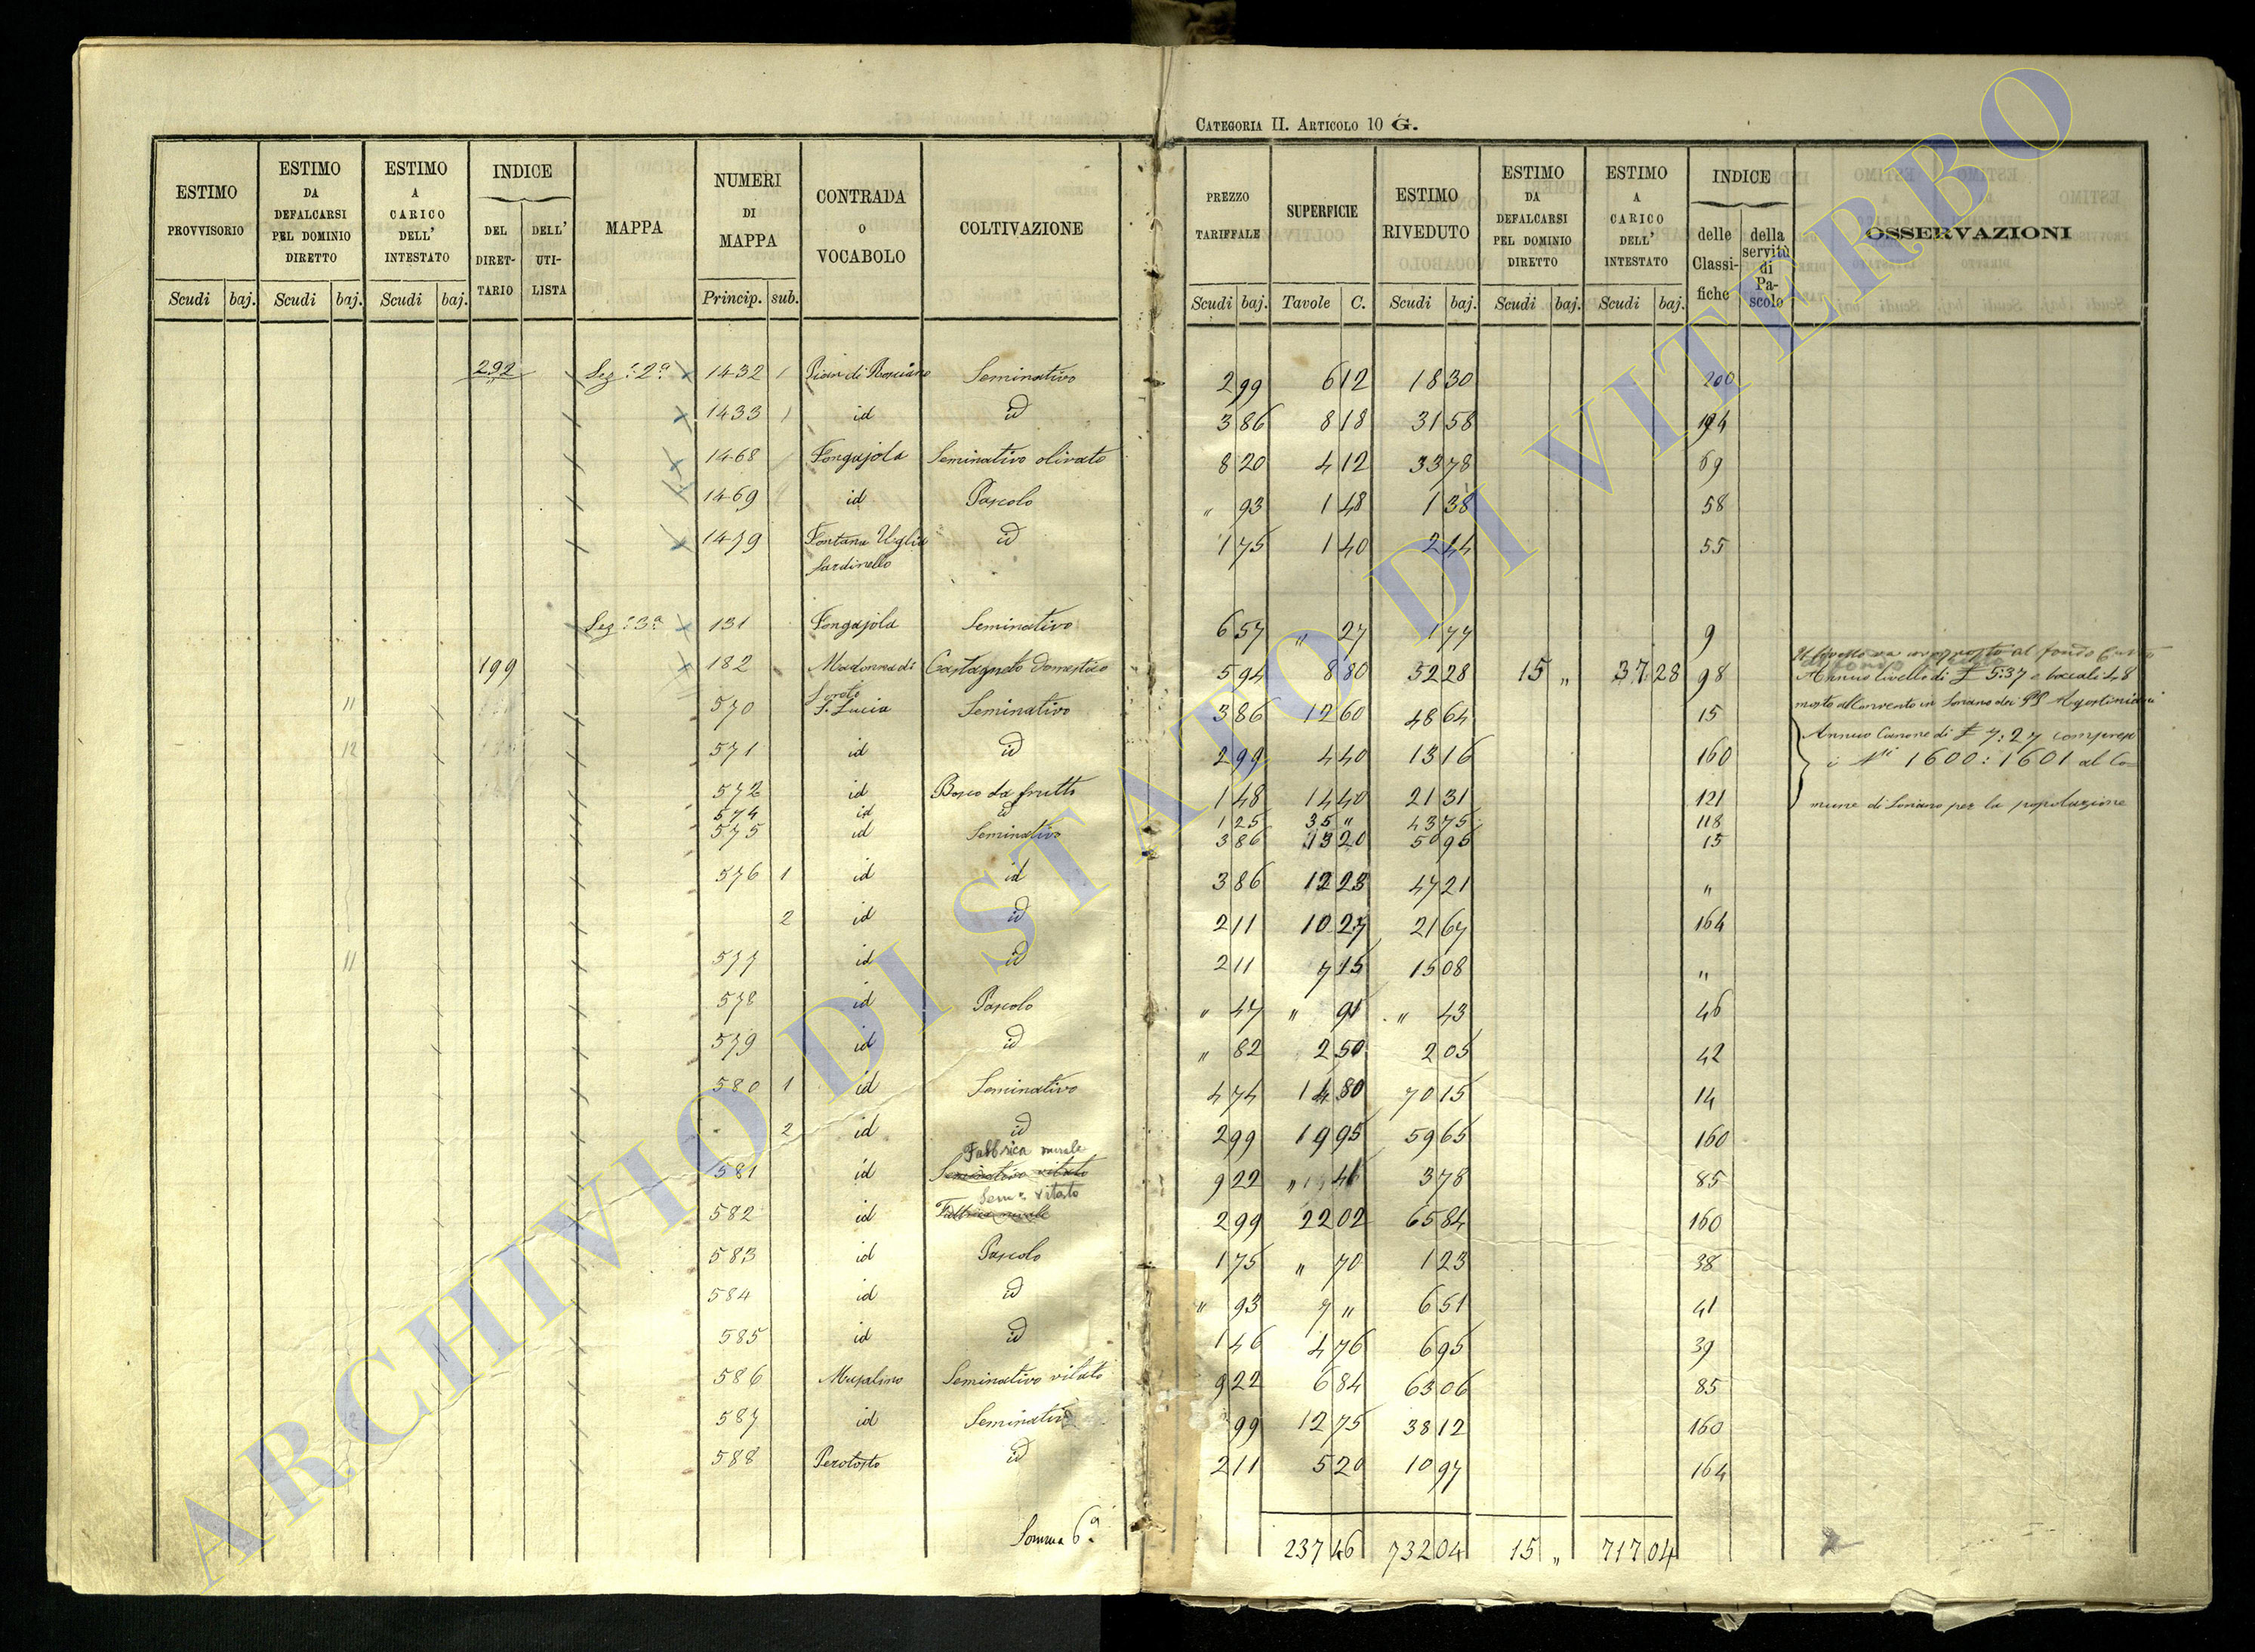 CATEGORIA II. ARTICOLO 10 G.
ESTIMO PROVVISORIO
ESTIMO DA DEFALCARSI PEL DOMINIO DIRETTO
ESTIMO A CARICO DELL' INTESTATO
INDICE
DEL DIRETTARIO
DELL' UTILISTA
MAPPA
NUMERI DI MAPPA
CONTRADA O VOCABOLO
COLTIVAZIONE
PREZZO TARIFFALE
SUPERFICIE
ESTIMO RIVEDUTO
ESTIMO DA DEFALCARSI PEL DOMINIO DIRETTO
ESTIMO A CARICO DELL' INTESTATO
INDICE
delle Classifiche
della servitù di Pascolo
OSSERVAZIONI
Scudi baj. Scudi baj. Scudi baj. Princip. sub.
Scudi baj. Tavole C. Scudi baj. Scudi baj. Scudi baj.
292 Sez.e 2a 1432 1 Pian di Seminativo 2 99 6 12 18 30 200
1433 1 id id 3 86 8 18 31 58 194
1468 Fongajola Seminativo olivato 8 20 4 12 33 78 69
1469 id Pascolo " 93 1 48 1 38 58
1479 Fontana id 1 75 1 40 2 44 55
Sardinello
Sez.e 3a 131 Fongajola Seminativo 6 57 " 27 1 77 9
199 182 Madonna di Loreto Castagneto Domestico 5 94 8 80 52 28 15 " 37 28 98
11 570 S. Lucia Seminativo 3 86 12 60 48 64 15
12 571 id id 2 99 4 40 13 16 160
572 id Bosco da frutto 1 48 14 40 21 31 121
574 id id 1 25 35 " 43 75 118
575 id Seminativo 3 86 13 20 50 95 15
576 1 id id 3 86 12 23 47 21 "
2 id id 2 11 10 27 21 67 164
11 577 id id 2 11 7 15 15 08 "
578 id Pascolo " 47 " 91 " 43 46
579 id id " 82 2 50 2 05 42
580 1 id Seminativo 4 74 14 80 70 15 14
2 id id 2 99 19 95 59 65 160
Fabbrica rurale
581 id Seminativo vitato 9 22 " 41 3 78 85
Sem.o vitato
582 id Fabbrica rurale 2 99 22 02 65 84 160
583 id Pascolo 1 75 " 70 1 23 38
584 id id " 93 7 " 6 51 41
585 id id 1 46 4 76 6 95 39
586 Musalino Seminativo vitato 9 22 6 84 63 06 85
587 id Seminativo 99 12 75 38 12 160
588 Perotosto id 2 11 5 20 10 97 164
al fondo
Annuo livello di £ 5:37 e boccali 48
mosto al Convento in Soriano dei PP Agostiniani
Annuo Canone di £ 7:27 compresi
i Ni 1600: 1601 al Co-
mune di Soriano per la popolazione
Somma 6a 237 46 732 04 15 " 717 04
ARCHIVIO DI STATO DI VITERBO